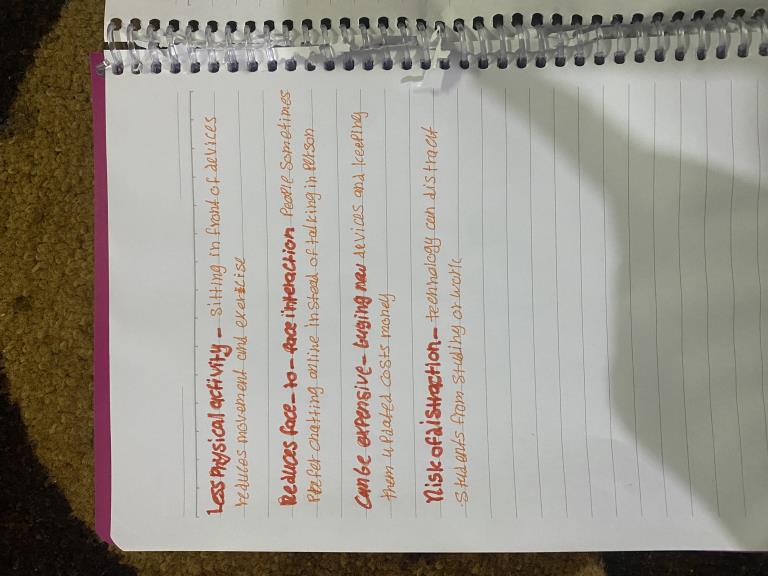 Less Physical activity - Sitting in front of devices
reduces movement and exercise
Reduces face-to-face interaction People Sometimes
Prefer chatting online instead of talking in Person
Can be expensive - buying new devices and keeping
them updated costs money
Risk of distraction - technology can distract
Students from studing or work